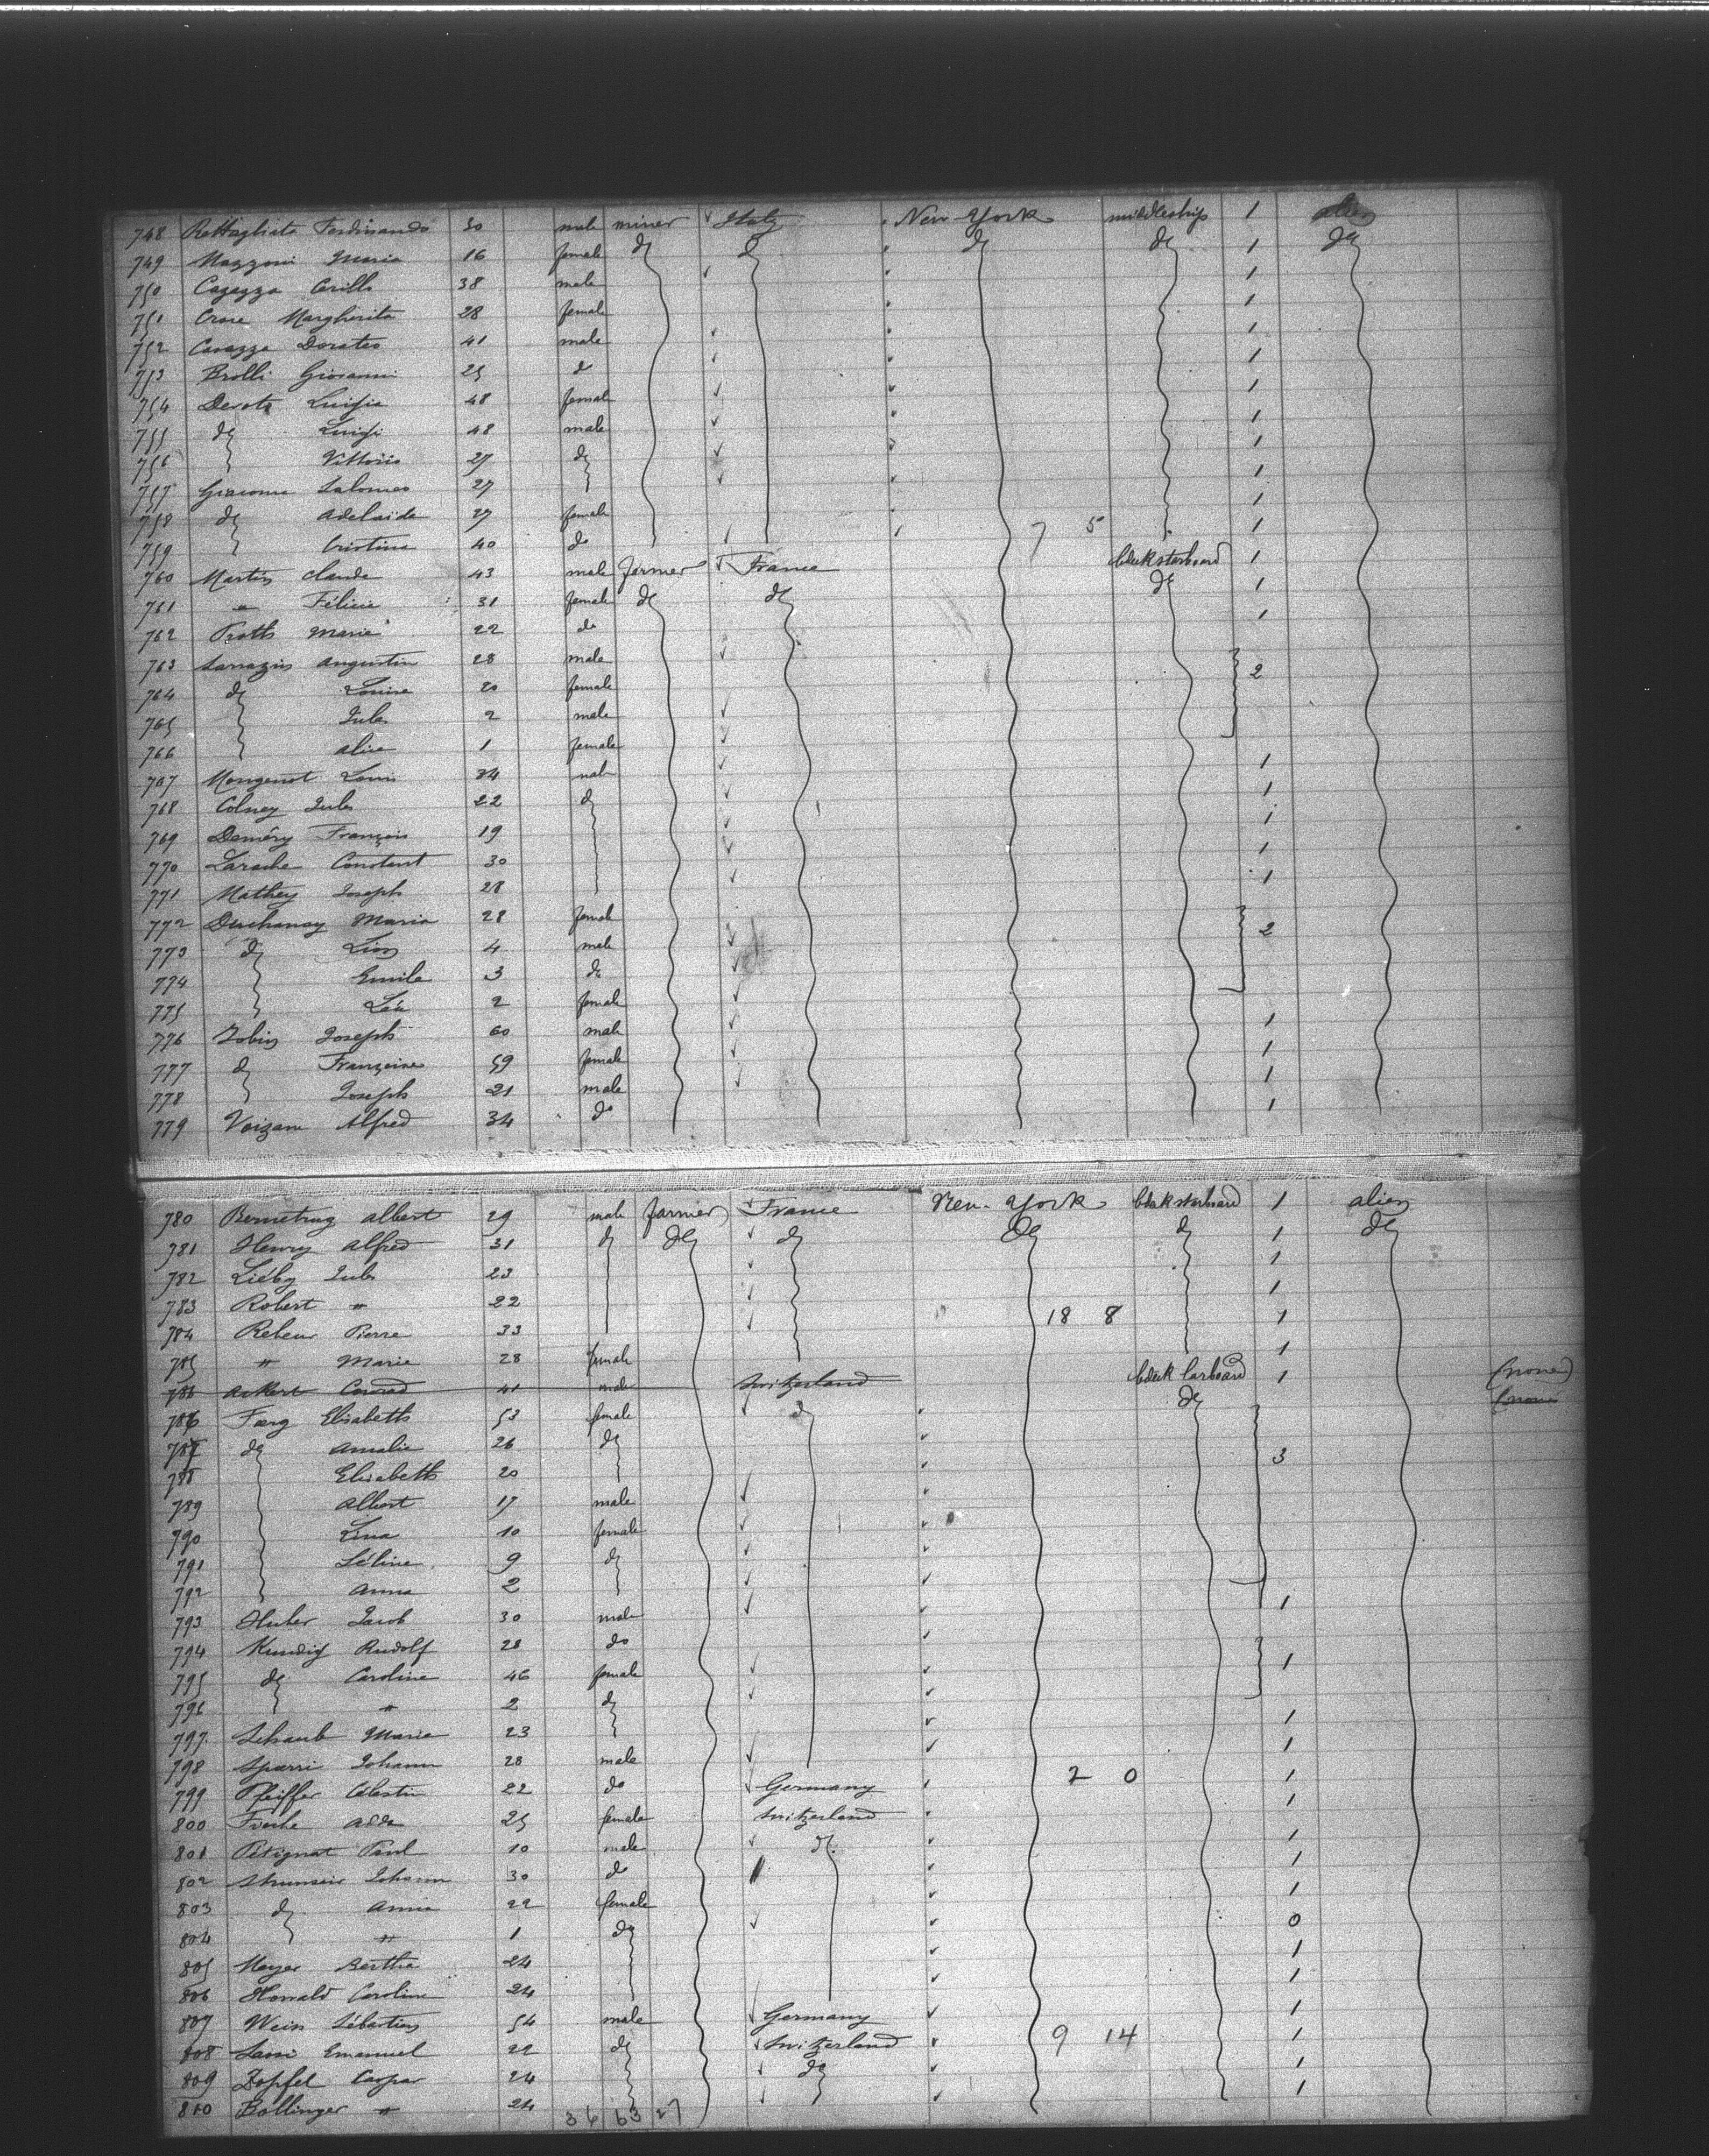 748 Rettagliata Ferdinando 30 male miner Italy New-York middleship 1 alien
749 Mazzoni Maria 16 female do do do do 1 do
750 Cagazza Cirillo 38 male 1
751 Crose Margherita 28 female 1
752 Cavazza Dorateo 41 male 1
753 Brolli Giovanni 25 do 1
754 Devoto Luigia 48 female 1
755 do Luigi 48 male 1
756 Vittorio 27 do 1
757 Giacoma Salomeo 27 1
758 do Adelaide 27 female 1
759 Cristina 40 do 7 5 1
760 Martin Claude 43 male farmer France bdeck starboard 1
761 " Félicie 31 female do do do 1
762 Proth Marie 22 do 1
763 Sarrazin Augustin 28 male 2
764 do Louise 20 female
765 Jules 2 male
766 Alice 1 female
767 Mongenot Louis 34 male 1
768 Colney Jules 22 do 1
769 Deméry François 19 1
770 Larache Constant 30 1
771 Mathey Joseph 28 1
772 Duchanoy Maria 28 female 2
773 do Léon 4 male
774 Emile 3 do
775 Léa 2 female
776 Tobin Joseph 60 male 1
777 do Françoise 59 female 1
778 Joseph 21 male 1
779 Voizam Alfred 34 do 1
780 Bernetruy Albert 29 male farmer France New-York bdeck starboard 1 alien
781 Henry Alfred 31 do do do do do 1 do
782 Liéby Jules 23 1
783 Robert " 22 1
784 Rebeur Pierre 33 18 8 1
785 " Marie 28 female 1
786 Ackert Conrad 41 male Switzerland bdeck larboard 1 (none)
786 Farg Elisabeth 53 female do do (none
787 do Amalie 26 do 3
788 Elisabeth 20
789 Albert 17 male
790 Lina 10 female
791 Céline 9 do
792 Anna 2
793 Huber Jacob 30 male 1
794 Kundig Rudolf 28 do
795 do Caroline 46 female 1
796 " 2 do
797 Schaub Marie 23 1
798 Sparri Johann 28 male 1
799 Pfeiffer Célestin 22 do Germany 2 0 1
800 Frische Adda 25 female Switzerland 1
801 Pétignat Paul 10 male do 1
802 Johann 30 do 1
803 do Anna 22 female 1
804 " 1 do 0
805 Meyer Bertha 24 1
806 Howald Caroline 24 1
807 Weiss Sébastien 54 male Germany 1
808 Emanuel 22 do Switzerland 9 14 1
809 Zopfel Caspar 24 do 1
810 Bollinger " 24 1
36 63 27